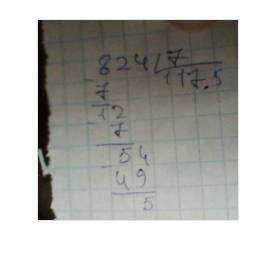 824 7
117.5
7
12
7
54
49
5